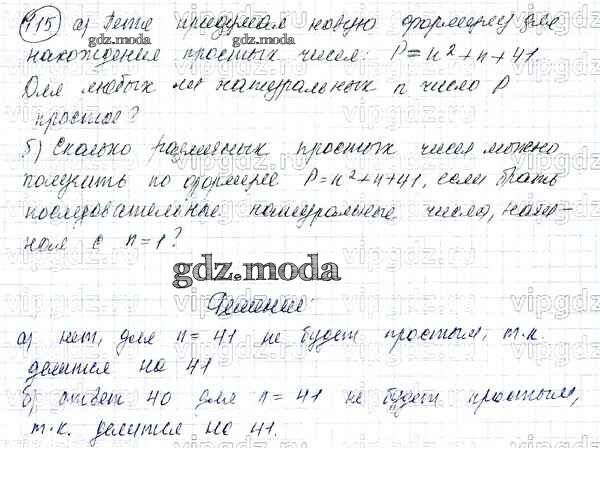 915 а) Петя придумал новую формулу для
gdz.moda gdz.moda
нахождения простых чисел: P = n² + n + 41
Для любых ли натуральных n число P
простое?
vipgdz.ru
б) Сколько различных простых чисел можно
получить по формуле P = n² + n + 41, если брать
последовательные натуральные числа, начи-
ная с n = 1?
gdz.moda
Решение:
а) нет, для n = 41 не будет простым, т.к.
делится на 41
б) ответ 40 для n = 41 не будет простым,
т.к. делится на 41.